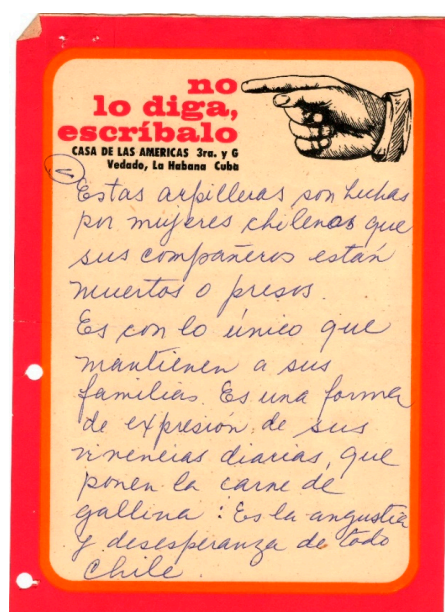 no
lo diga,
escríbalo
CASA DE LAS AMERICAS 3ra. y G
Vedado, La Habana Cuba
Estas arpilleras son hechas
por mujeres chilenas que
sus compañeros están
muertos o presos.
Es con lo único que
mantienen a sus
familias. Es una forma
de expresión de sus
vivencias diarias, que
ponen la carne de
gallina: Es la angustia
y desesperanza de todo
Chile.